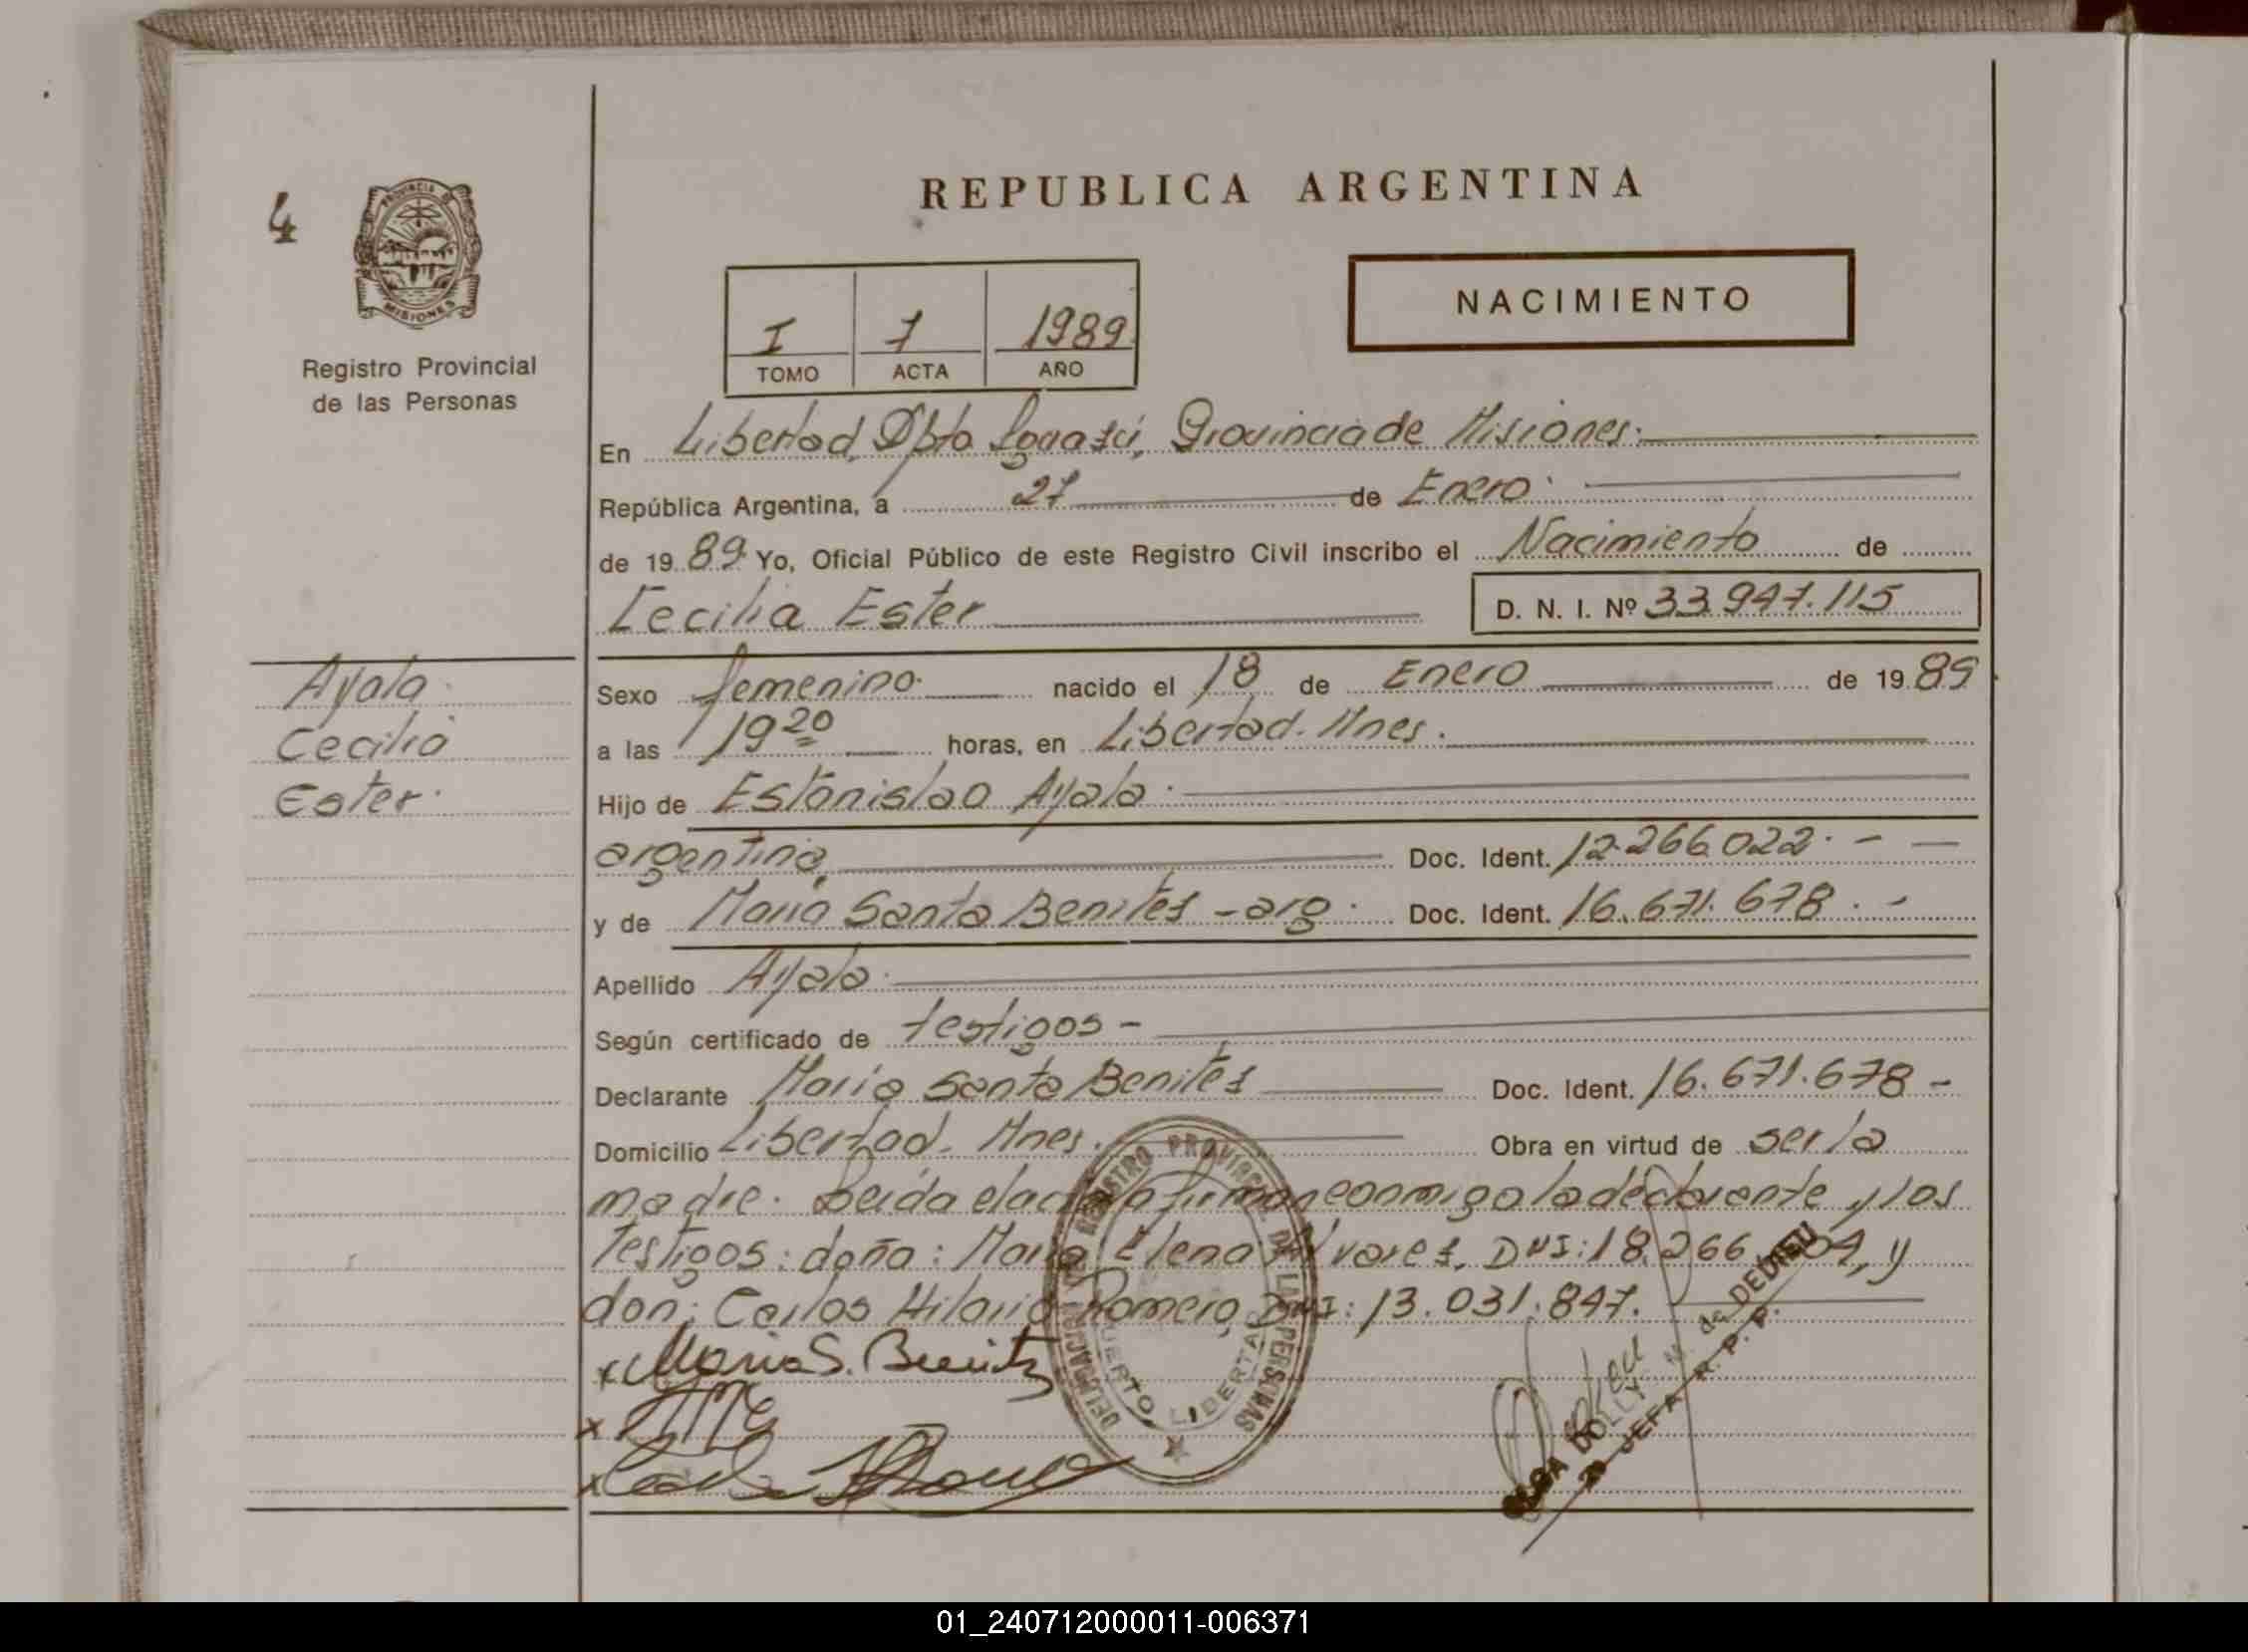 REPUBLICA ARGENTINA
4
PROVINCIA DE
MISIONES
Registro Provincial
de las Personas
I 7 1989
TOMO ACTA AÑO
NACIMIENTO
En Libertad, Dpto Iguazú, Provincia de Misiones.
República Argentina, a 27 de Enero
de 1989 Yo, Oficial Público de este Registro Civil inscribo el Nacimiento de
Cecilia Ester D. N. I. Nº 33.947.115
Ayala
Cecilia
Ester
Sexo femenino nacido el 18 de Enero de 1989
a las 19 20 horas, en Libertad. Mnes.
Hijo de Estanislao Ayala
argentina, Doc. Ident. 12.266.022
y de Maria Santa Benites - arg. Doc. Ident. 16.671.678
Apellido Ayala
Según certificado de testigos -
Declarante Maria Santa Benites Doc. Ident. 16.671.678 -
Domicilio Libertad. Mnes. Obra en virtud de ser la
madre. Leida el acta firman conmigo la declarante y los
Testigos: doña: Maria Elena Alvares, DNI: 18.266. y
don: Carlos Hilario Romero, DNI: 13.031.847.
x Maria S. Benitz
x
x
DELEGACION DEL REGISTRO PROVINCIAL DE LAS PERSONAS
PUERTO LIBERTAD
DOLLY N. de DEDIEU
JEFA R. P. P.
01_240712000011-006371